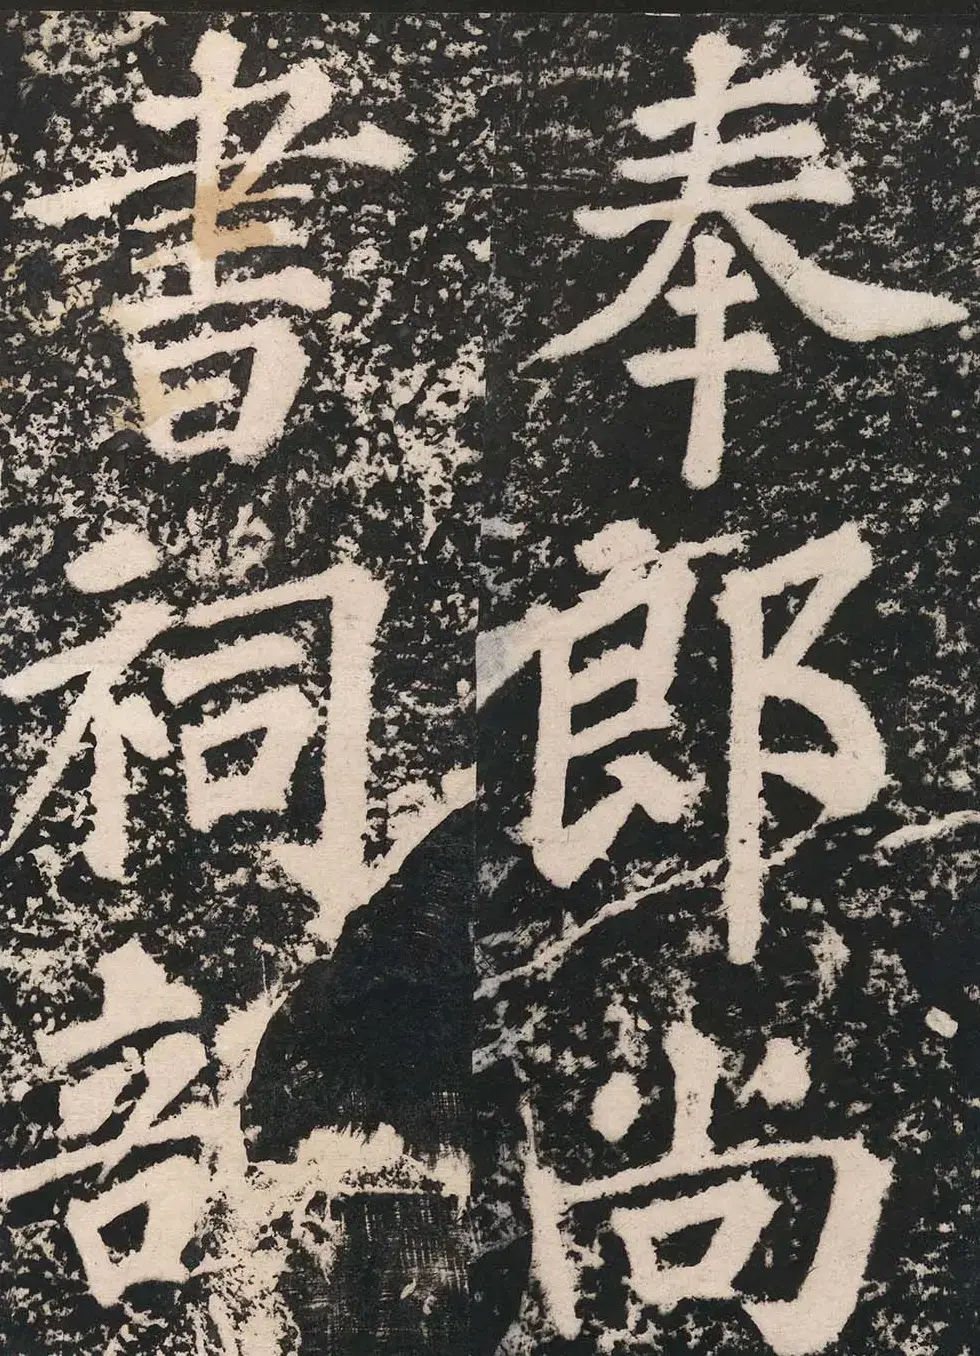 奉郎尚
書祠部